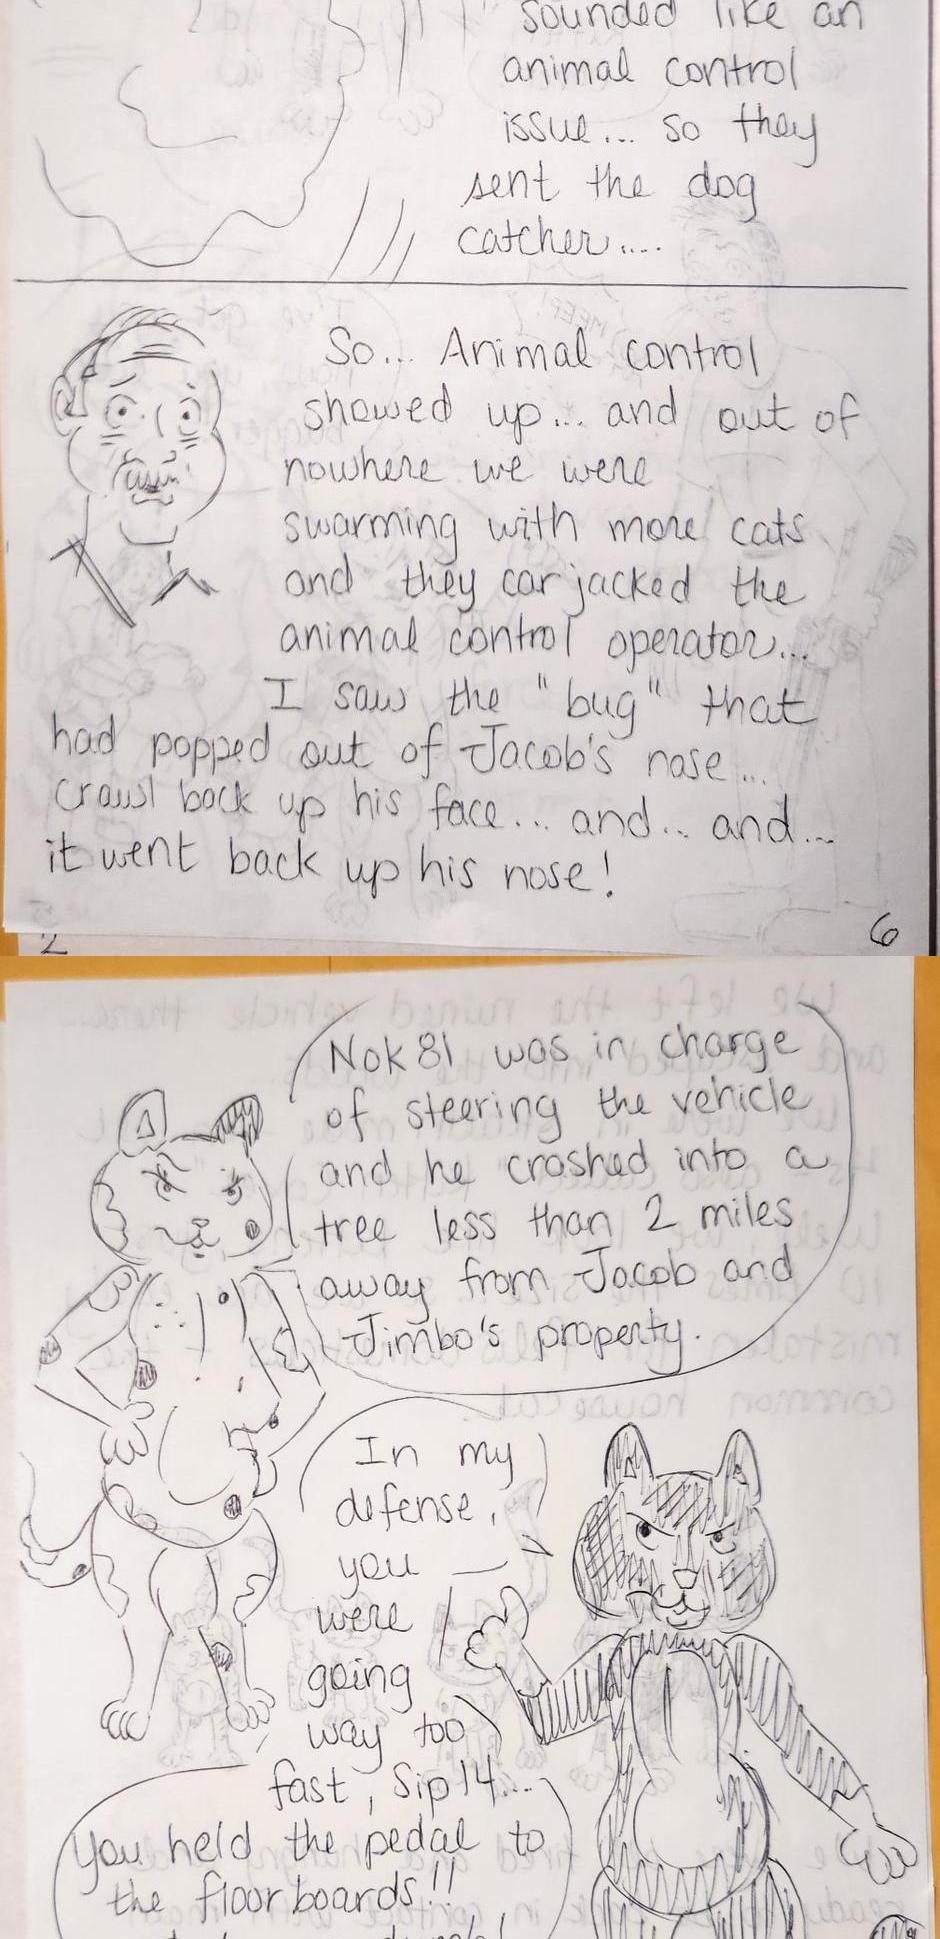 sounded like an
animal control
issue... so they
sent the dog
catcher....
So... Animal control
showed up... and out of
nowhere we were
swarming with more cats
and they carjacked the
animal control operator...
I saw the "bug" that
had popped out of Jacob's nose...
crawl back up his face... and... and...
it went back up his nose!
2
6
Nok81 was in charge
of steering the vehicle
and he crashed into a
tree less than 2 miles
away from Jacob and
Jimbo's property.
In my
defense,
you
were
going
way too
fast, Sip14...
You held the pedal to
the floorboards!!